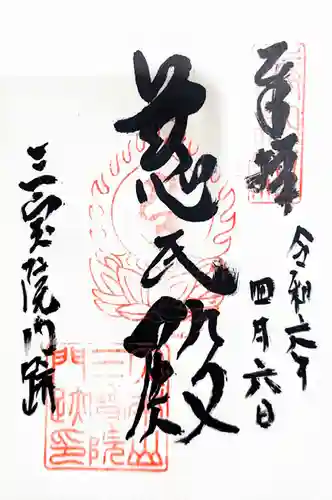 奉拝
令和六年
四月六日
慈氏殿
三宝院門跡
醍醐山
三寶院
門跡印